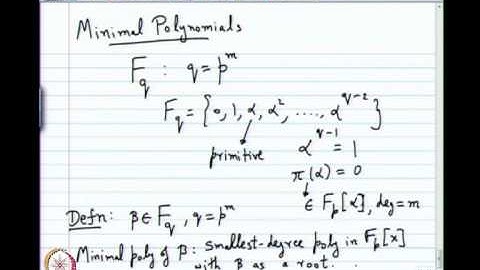 Minimal Polynomials
F_q : q = p^m
F_q = {0, 1, α, α², ...., α^{q-2}}
primitive
α^{q-1} = 1
π(α) = 0
∈ F_p[α], deg = m
Defn: β ∈ F_q, q = p^m
Minimal poly of β: smallest-degree poly in F_p[x]
with β as a root.